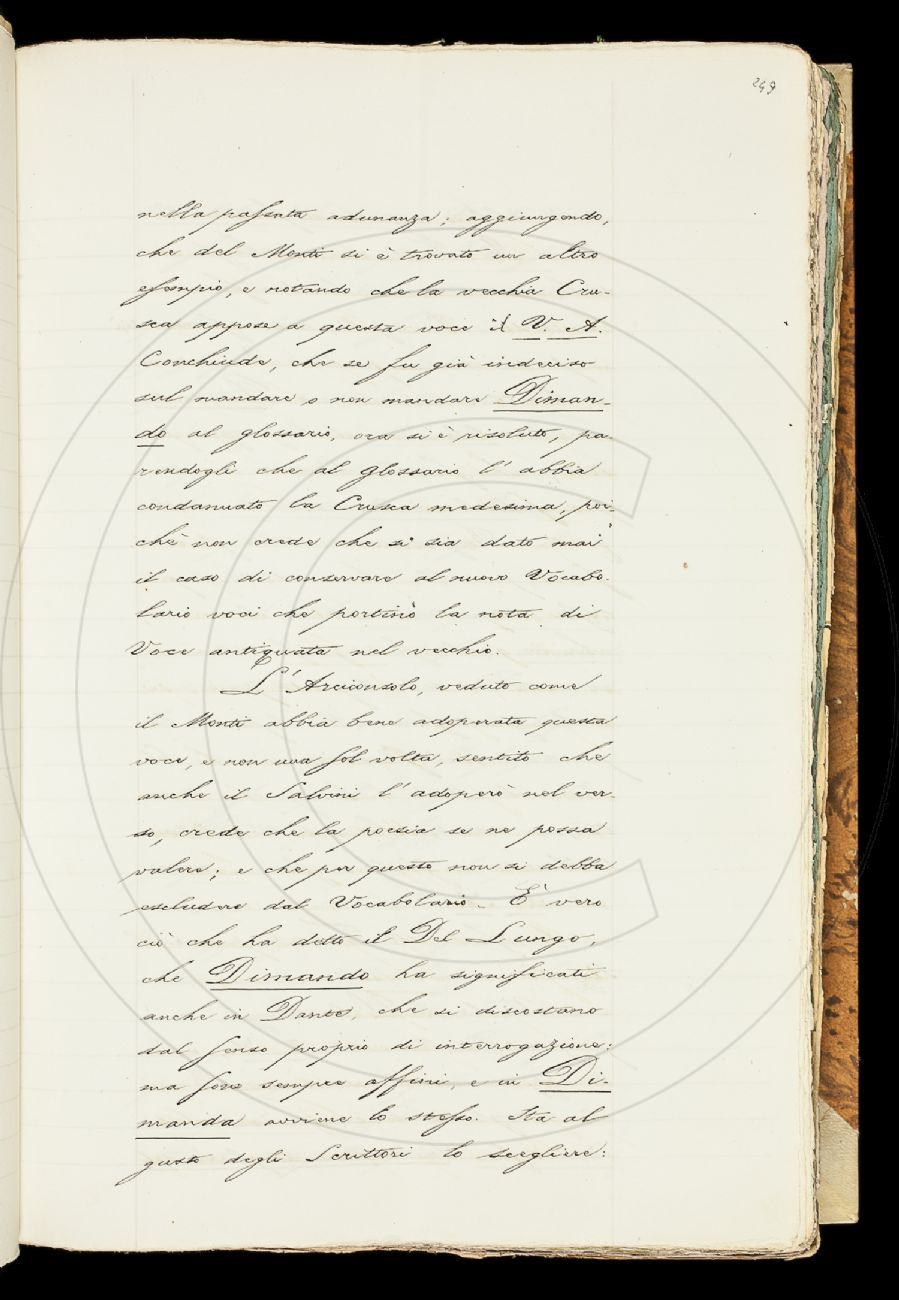 249
nella passata adunanza; aggiungendo,
che del Monti si è trovato un altro
esempio, e notando che la vecchia Cru-
sca appose a questa voce il V. A.
Conchiude, che se fu già indeciso
sul mandare o non mandare Diman-
do al glossario, ora si è risoluto, pa-
rendogli che al glossario l'abbia
condannato la Crusca medesima, poi-
chè non crede che si sia dato mai
il caso di conservare al nuovo Vocabo-
lario voci che portino la nota di
Voce antiquata nel vecchio.
L'Arciconsolo, veduto come
il Monti abbia bene adoperata questa
voce, e non una sol volta, sentito che
anche il Salvini l'adoperò nel ver-
so, crede che la poesia se ne possa
valere; e che per questo non si debba
escludere dal Vocabolario. È vero
ciò che ha detto il Del Lungo,
che Dimando ha significati
anche in Dante, che si discostano
dal senso proprio di interrogazione:
ma sono sempre affini, e in Di-
manda avviene lo stesso. Sta al
gusto degli Scrittori lo scegliere: